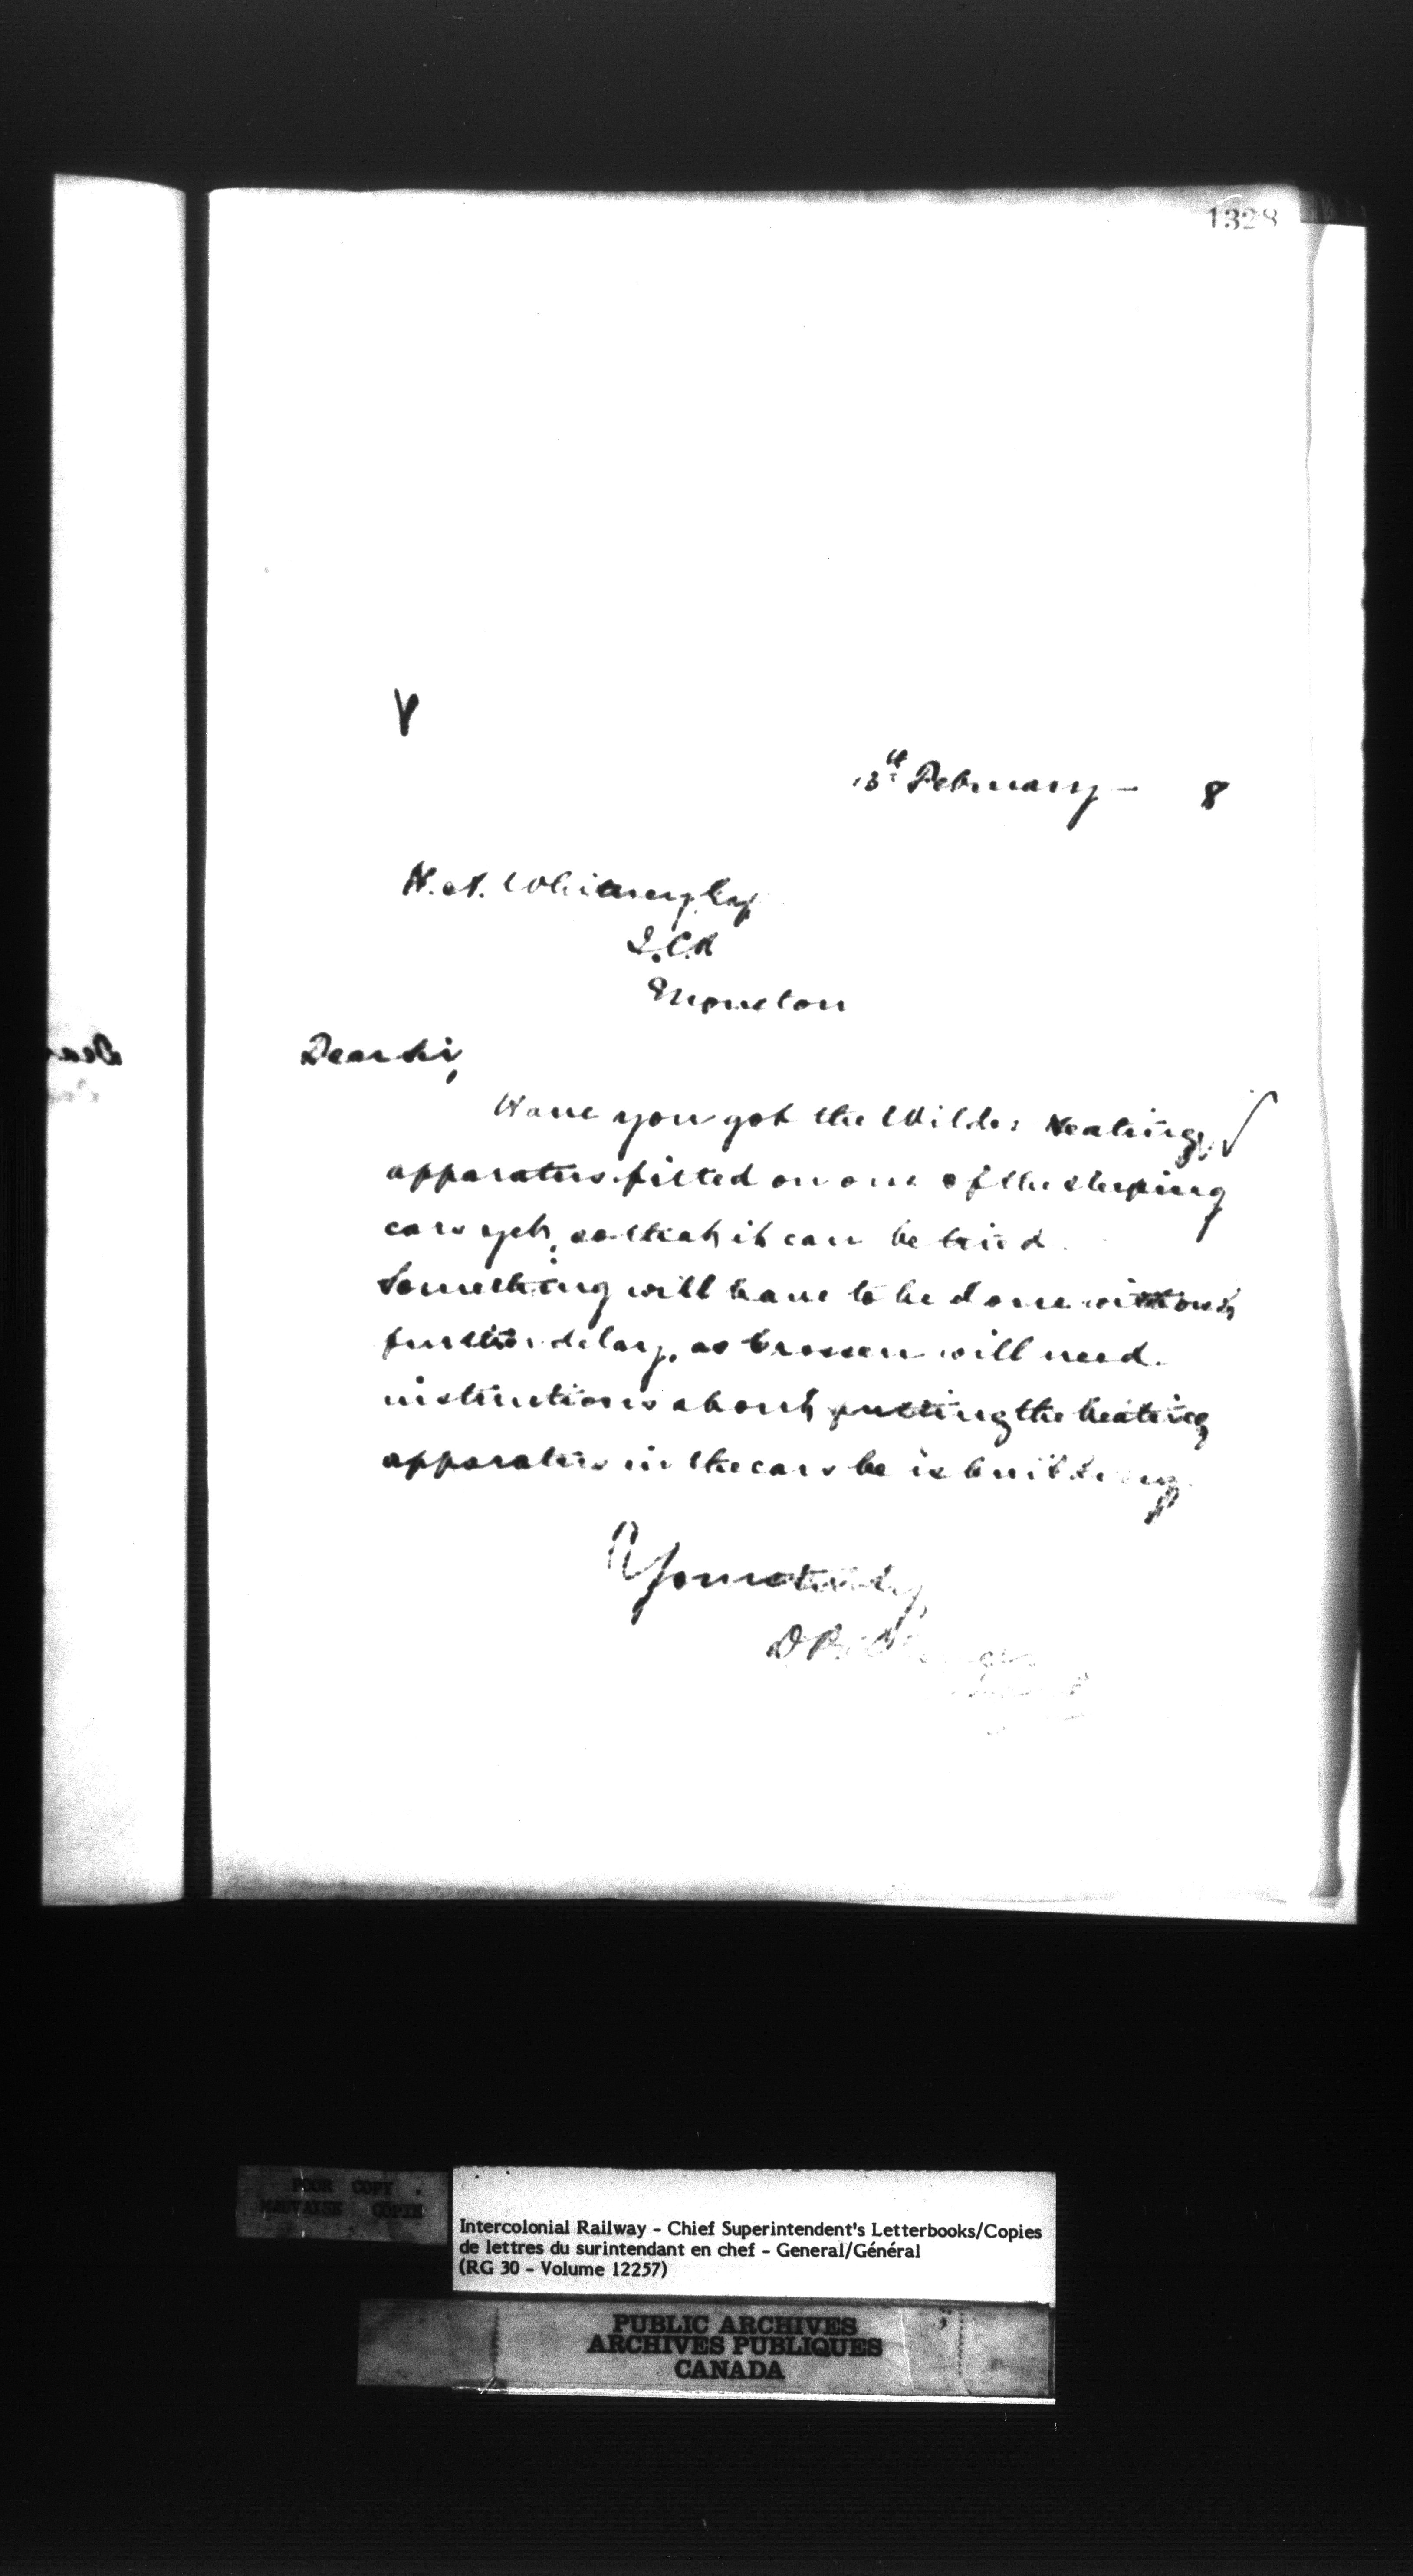 1328
13th February - 8
H. A. Whitney Esq
I.C.R
Moncton
Dear Sir,
Have you got the Wilder Heating
apparatus fitted on one of the sleeping
cars yet, so that it can be tried.
Something will have to be done without
further delay, as Crossen will need
instructions about putting the heating
apparatus in the cars he is building.
Yours truly,
D P
POOR COPY
MAUVAISE COPIE
Intercolonial Railway - Chief Superintendent's Letterbooks/Copies
de lettres du surintendant en chef - General/Général
(RG 30 - Volume 12257)
PUBLIC ARCHIVES
ARCHIVES PUBLIQUES
CANADA